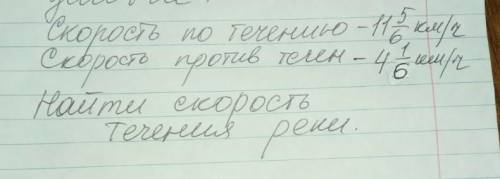 Скорость по течению - 11 5/6 км/ч
Скорость против течен - 4 1/6 км/ч
Найти скорость
течения реки.